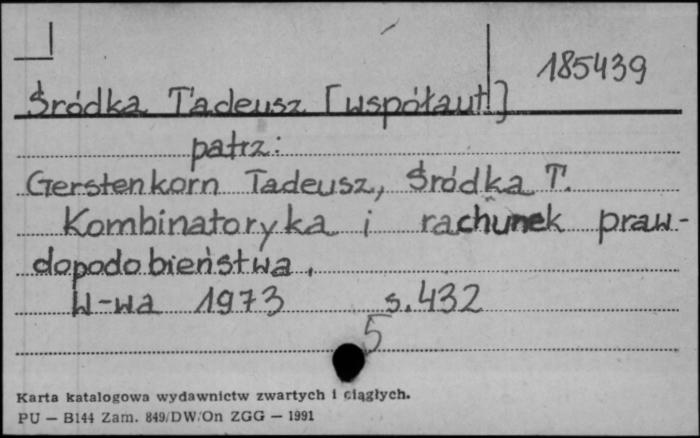 185439
Śródka Tadeusz [współaut.]
patrz:
Gerstenkorn Tadeusz, Śródka T.
Kombinatoryka i rachunek praw-
dopodobieństwa.
W-wa 1973 s. 432
5
Karta katalogowa wydawnictw zwartych i ciągłych.
PU — B144 Zam. 849/DW/On ZGG — 1991